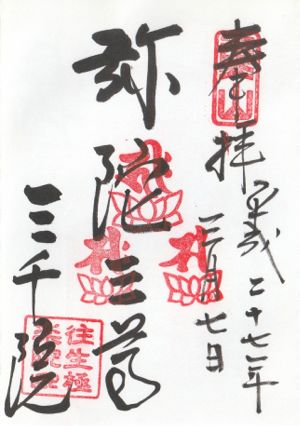 奉拝 平成二十七年
三月七日
弥陀三尊
三千院
往生極